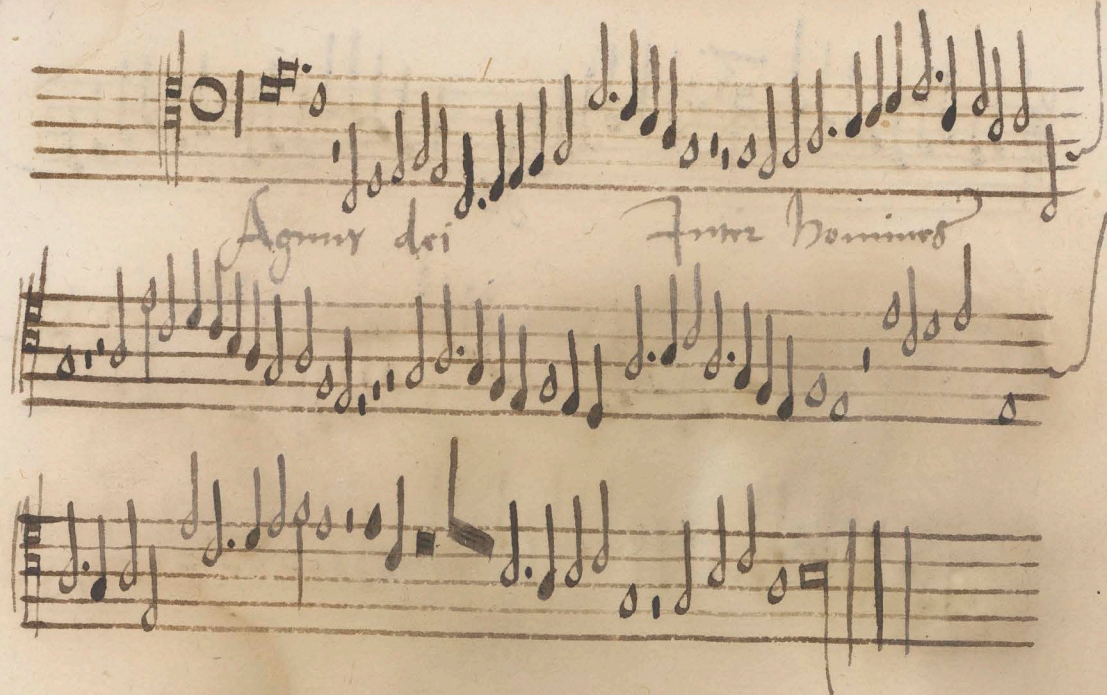 Agnus dei Inter homines